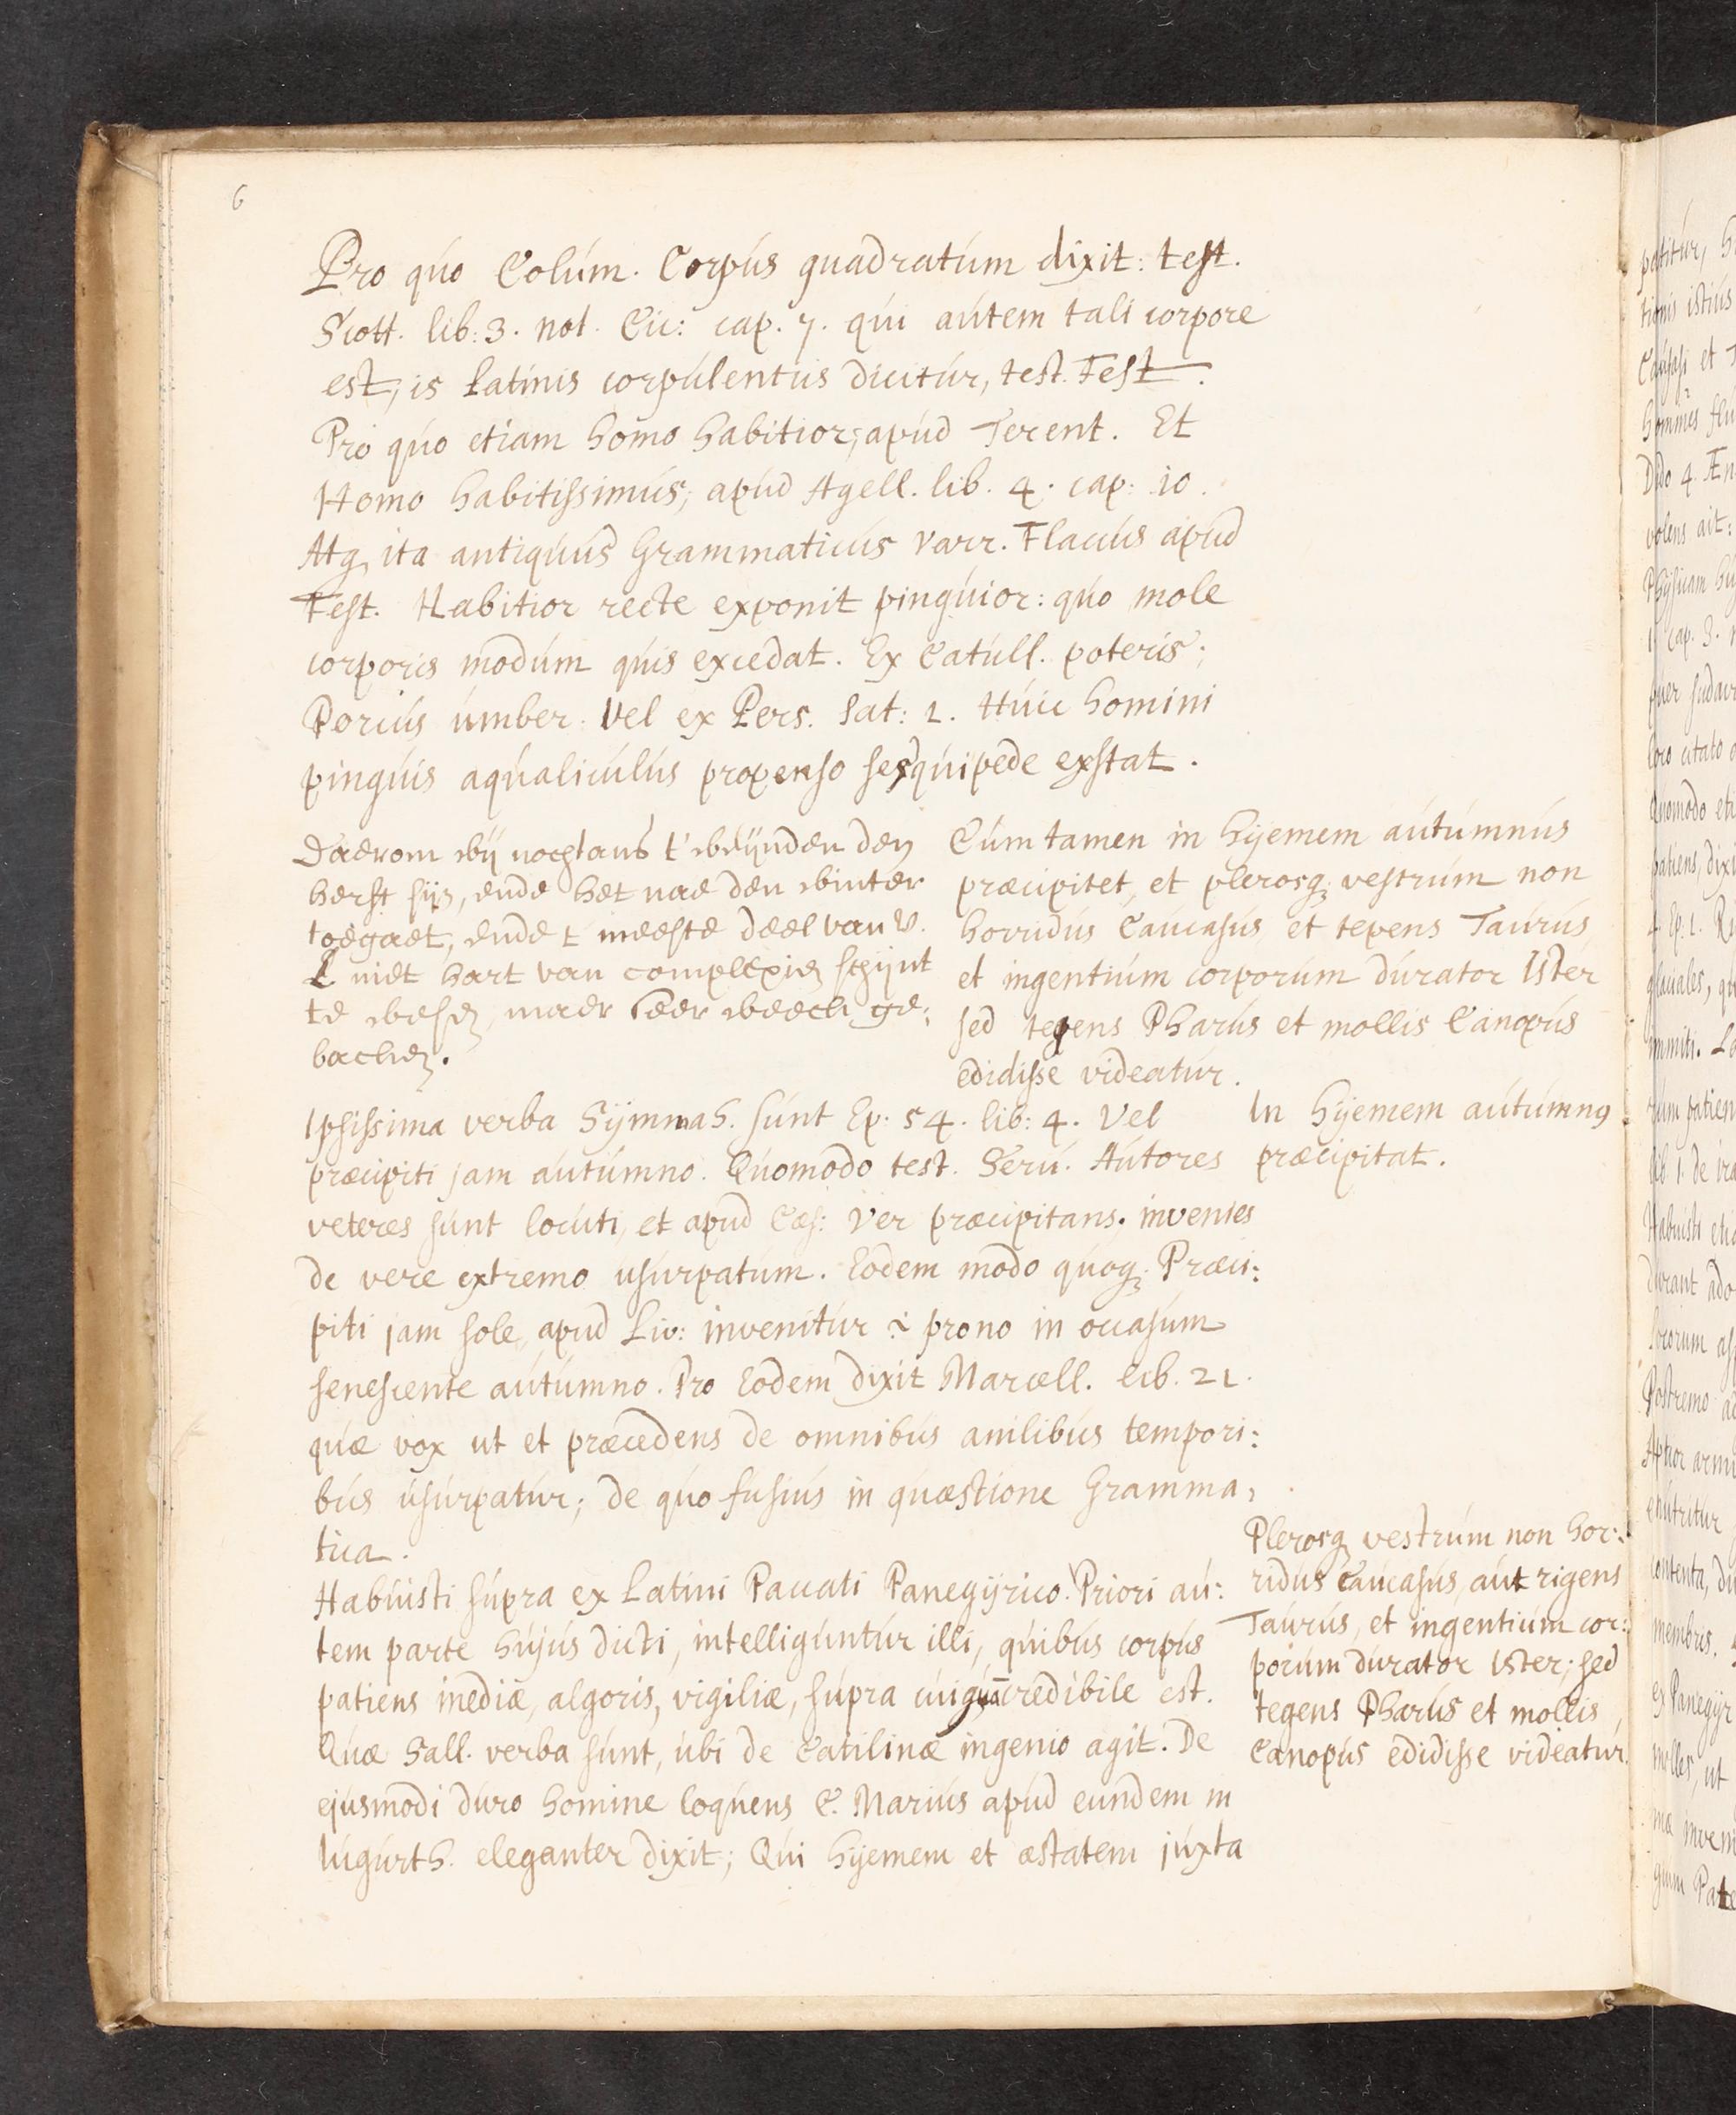 6
Pro quo Colum. Corpus quadratum dixit: test.
Scott. lib: 3. not. Cic: cap. 7. qui autem tali corpore
est, is Latinis corpulentus dicitur, test. Fest.
Pro quo etiam homo habitior, apud Terent. Et
Homo habitissimus, apud Agell. lib. 4. cap: 10.
Atq, ita antiquus Grammaticus Varr. Flaccus apud
Fest. Habitior recte exponit pinguior: quo mole
corporis modum quis excedat. Ex Catull. poteris;
Porcus umber. Vel ex Pers. Sat: 1. Huic homini
pinguis aqualiculus propenso sesquipede exstat.
Daerom wij nochtans t' eynden den
herst sijn, ende het nae den winter
toegaet, ende t meeste deel van V.
L niet hart van complexien schijnt
te wesen, maer seer weeck ge:
backen.
Cum tamen in hyemem autumnus
præcipitet, et plerosq; vestrum non
horridus Caucasus et tepens Taurus
et ingentium corporum durator Ister
sed tegens Pharus et mollis Canopus
edidisse videatur.
Ipsissima verba Symmah. sunt Ep. 54. lib: 4. Vel
præcipiti jam autumno. Quomodo test. Seru. Autores
veteres sunt locuti, et apud Cæs: Ver præcipitans. invenies
de vere extremo usurpatum. Eodem modo quoq; Præci:
piti jam sole, apud Liv: invenitur i prono in occasum
senescente autumno. Pro Eodem dixit Marcell. lib. 21.
quæ vox ut et præcedens de omnibus anilibus tempori:
bus usurpatur; de quo fusius in quæstione Gramma,
tica.
In hyemem autumn9
præcipitat.
Habuisti supra ex Latini Paccati Panegyrico. Priori au:
tem parte hujus dicti, intelliguntur illi, quibus corpus
patiens inediæ, algoris, vigiliæ, supra cuiquā credibile est.
Quæ Sall. verba sunt, ubi de Catilinæ ingenio agit. De
ejusmodi duro homine loquens C. Marius apud eundem in
Iugurth. eleganter dixit; Qui hyemem et æstatem juxta
Plerosq vestrum non hor:
ridus Caucasus, aut rigens
Taurus, et ingentium cor:
porum durator Ister; sed
tegens Pharus et mollis
Canopus edidisse videatur.